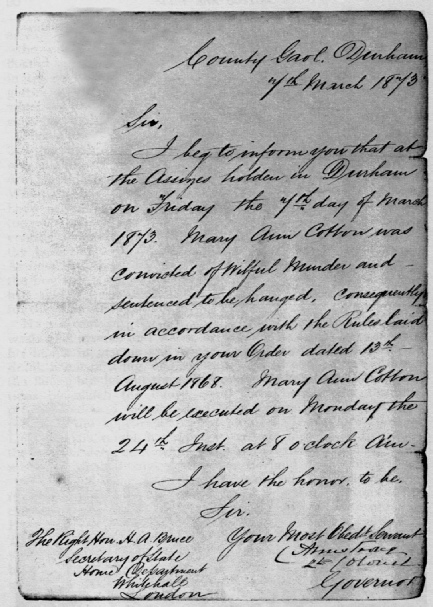 County Gaol. Durham
7th March 1873
Sir,
I beg to inform you that at
the Assizes holden in Durham
on Friday the 7th day of March
1873. Mary Ann Cotton was
convicted of Wilful Murder and
sentenced to be hanged, consequently
in accordance with the Rules laid
down in your Order dated 13th
August 1868. Mary Ann Cotton
will be executed on Monday the
24th Inst. at 8 o'clock Am.
I have the honor. to be.
Sir.
Your Most Obedt. Servant
Lt Colonel
Governor
The Right Hon H. A. Bruce
Secretary of State
Home Department
Whitehall
London